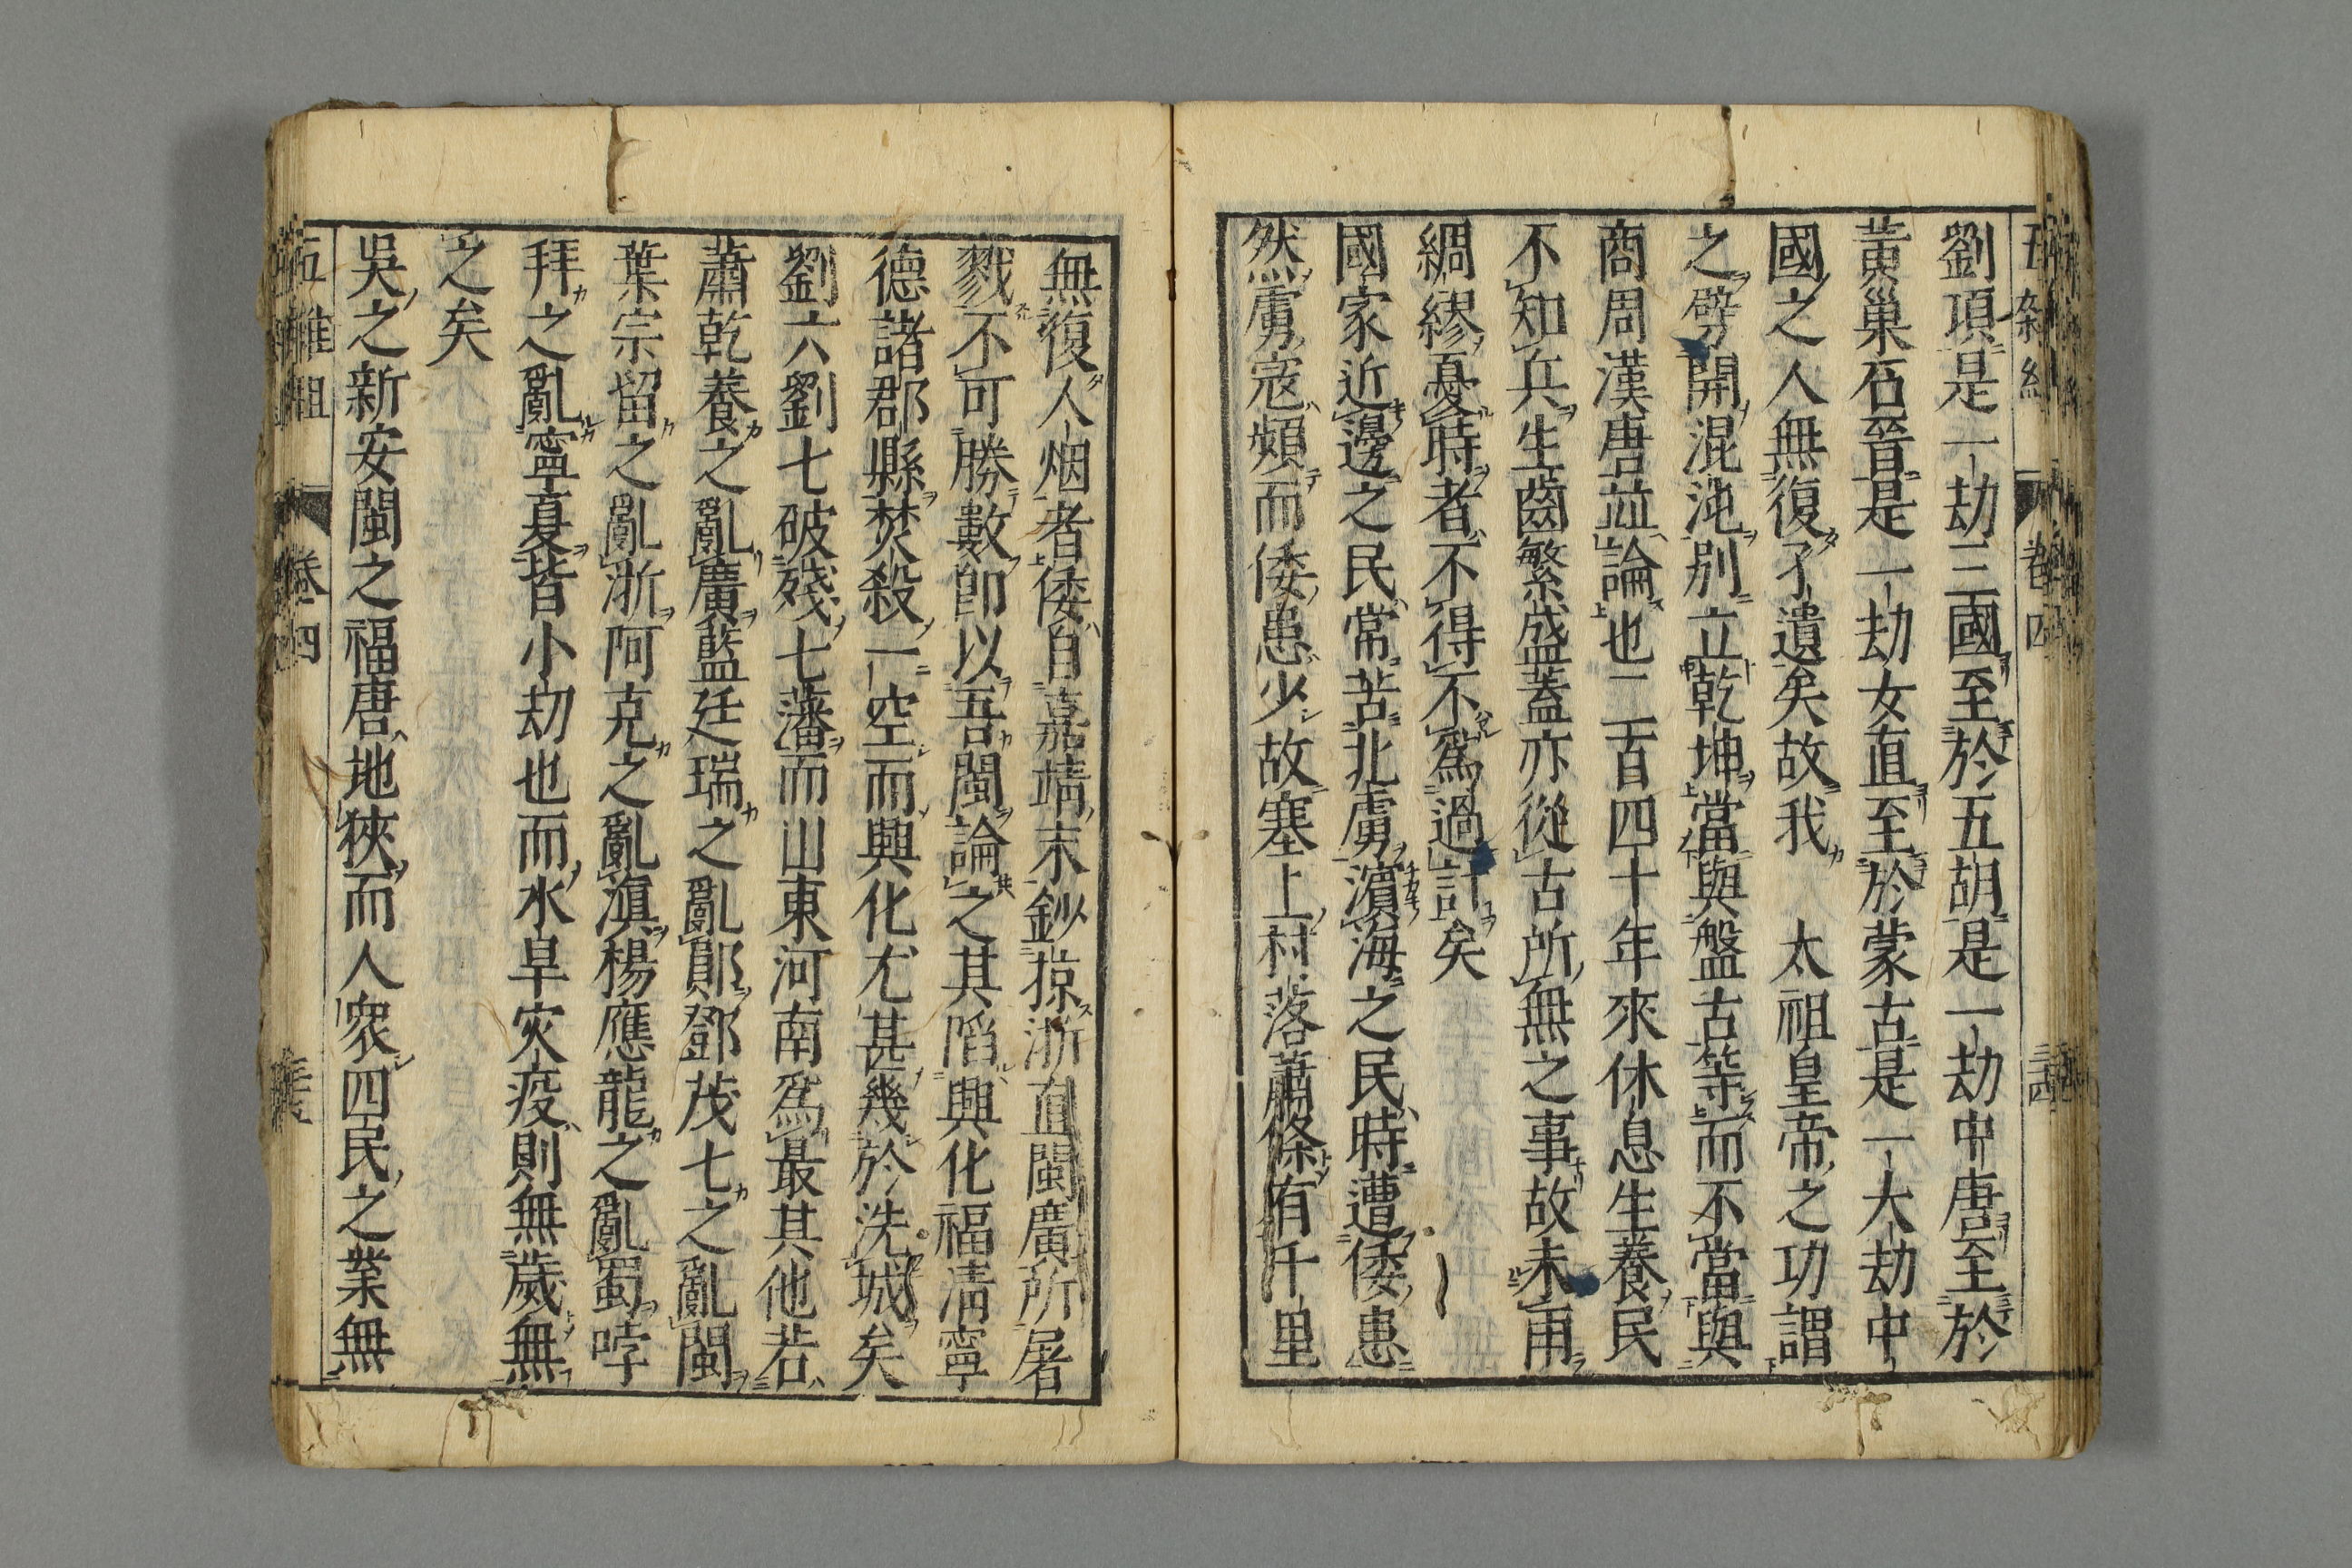 劉項是一劫三國至於五胡是一劫中唐至於
黃巢石晉是一劫女直至於蒙古是一大劫中
國之人無復孑遺矣故我 太祖皇帝之功謂
之劈開混沌別立乾坤當與盤古等而不當與
商周漢唐並論也二百四十年來休息生養民
不知兵生齒繁盛蓋亦從古所無之事故未雨
綢繆憂時者不得不爲過計矣
國家近邊之民常苦北虜濱海之民時遭倭患
然虜寇頻而倭患少故塞上村落蕭條有千里
無復人烟者倭自嘉靖末鈔掠浙直閩廣所屠
戮不可勝數即以吾閩論之其陷興化福清寧
德諸郡縣焚殺一空而興化尤甚幾於洗城矣
劉六劉七破殘七藩而山東河南爲最其他若
蕭乾養之亂廣藍廷瑞之亂鄖鄧茂七之亂閩
葉宗留之亂浙阿克之亂滇楊應龍之亂蜀哱
拜之亂寧夏皆小劫也而水旱灾疫則無歲無
之矣
吳之新安閩之福唐地狹而人衆四民之業無
五雜組 卷四